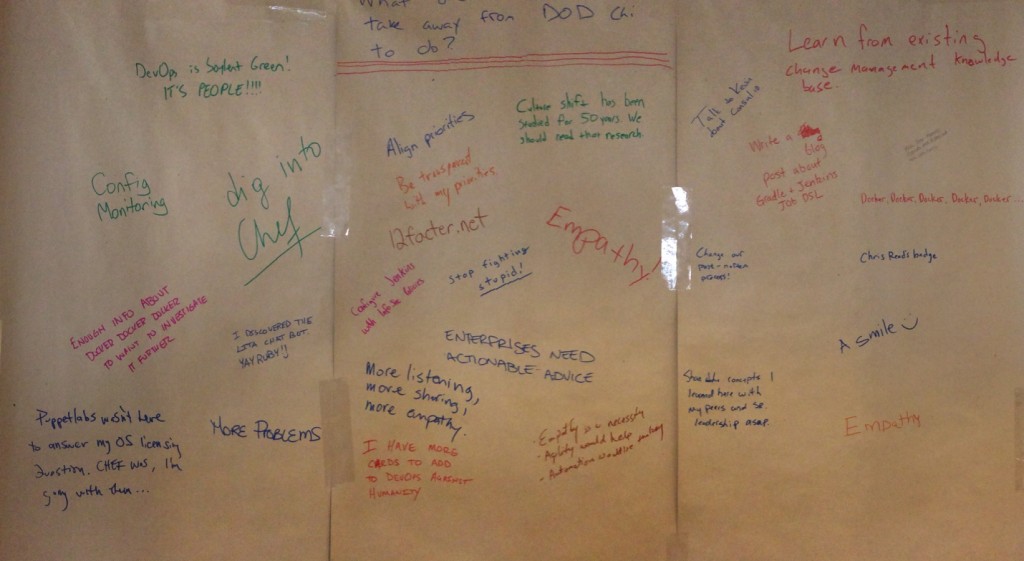 take away from DOD Chi
to do?
DevOps is Soylent Green!
IT'S PEOPLE!!!!
Config
Monitoring
dig into
Chef
ENOUGH INFO ABOUT
DOCKER DOCKER DOCKER
TO WANT TO INVESTIGATE
IT FURTHER
I DISCOVERED THE
LITA CHAT BOT.
YAY RUBY!!
Puppetlabs wasn't here
to answer my OS licensing
question. CHEF WAS, I'm
going with them...
MORE PROBLEMS
Align priorities
Culture shift has been
studied for 50 years. We
should read that research.
Be transparent
with my priorities.
12factor.net
Empathy!
Configure Jenkins
stop fighting
stupid!
ENTERPRISES NEED
ACTIONABLE ADVICE
More listening,
more sharing,
more empathy.
I HAVE MORE
CARDS TO ADD
TO DEVOPS AGAINST
HUMANITY
- Empathy is a necessity
- Agility would help
- Automation
Learn from existing
change management knowledge
base.
Talk to
about
Write a
blog
post about
Gradle + Jenkins
Job DSL
Docker, Docker, Docker, Docker, Docker...
Change our
post-mortem
process!
Chris Read's badge
A smile
Share the concepts I
learned here with
my peers and
leadership asap.
Empathy